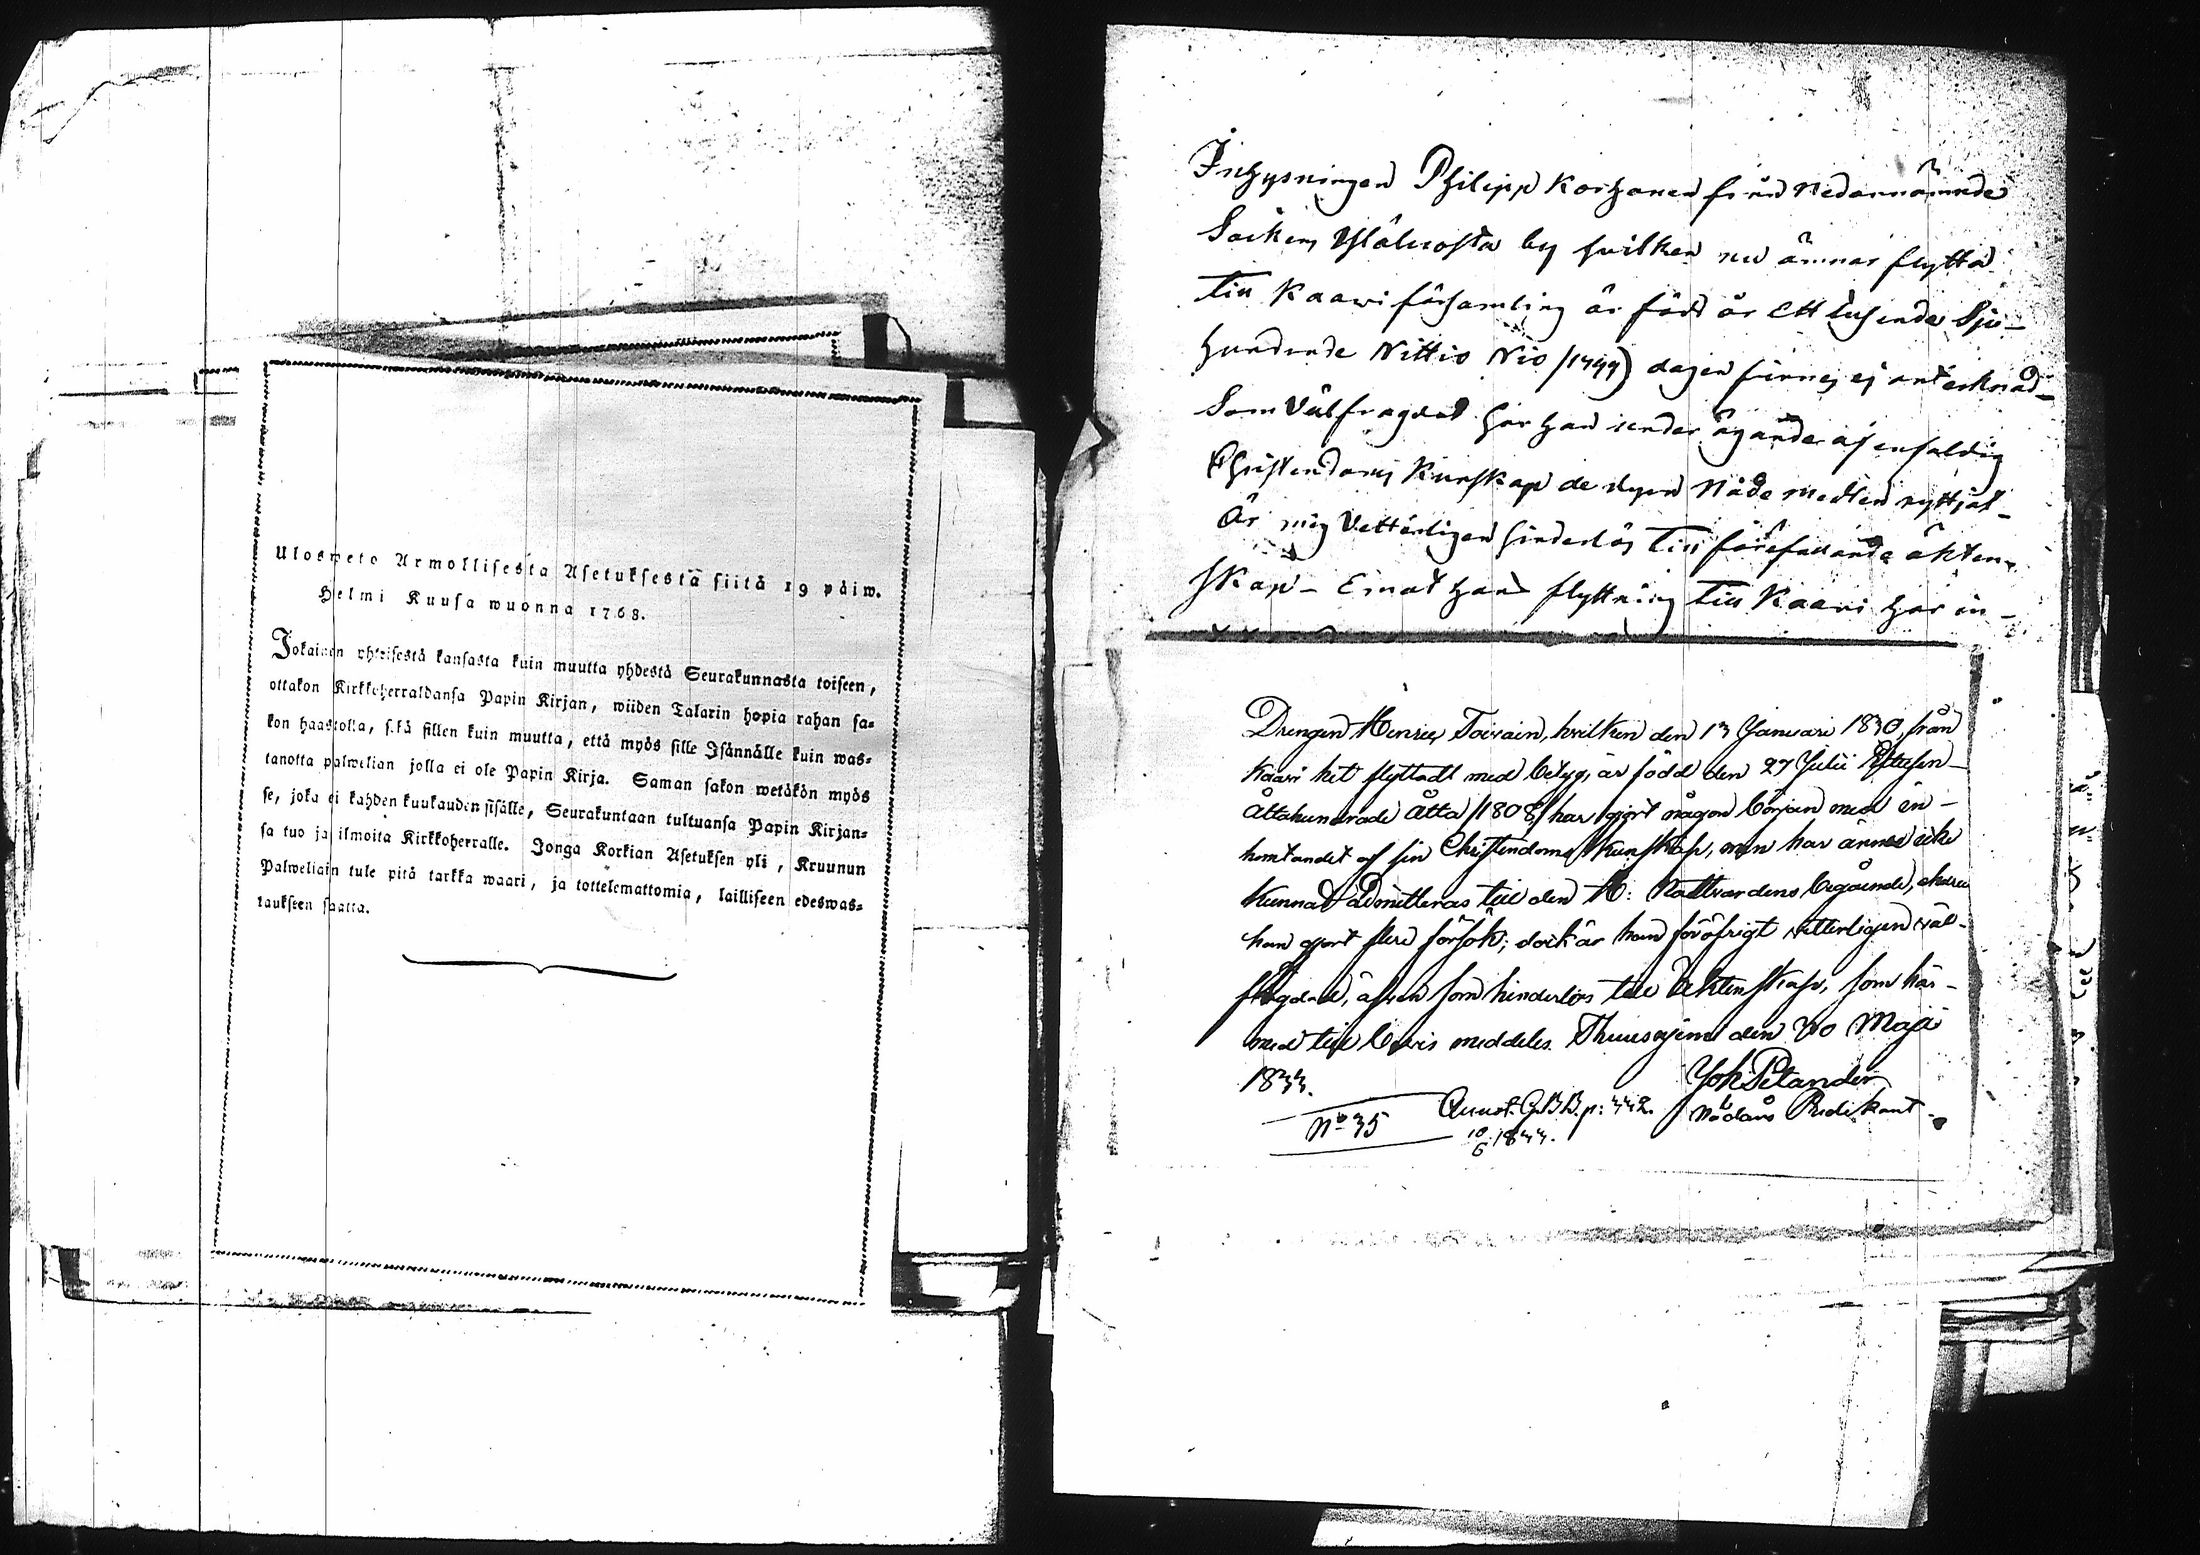 Ulosweto Armollisesta Asetuksesta siitä 19 päiw.
Helmi Kuusa wuonna 1768.
Jokainen yhteisestä kansasta kuin muutta yhdestä Seurakunnasta toiseen,
ottakon Kirkkoherraldansa Papin Kirjan, wiiden Talarin hopia rahan sa-
kon haastolla, sekä sillen kuin muutta, että myös sille Isännälle kuin was-
tanotta palwelian jolla ei ole Papin Kirja. Saman sakon wetäkön myös
se, joka ei kahden kuukauden sisälle, Seurakuntaan tultuansa Papin Kirjan-
sa tuo ja ilmoita Kirkkoherralle. Jonga Korkian Asetuksen yli, Kruunun
Palweliain tule pitä tarkka waari, ja tottelemattomia, lailliseen edeswas-
taukseen saatta.
Inhysningen Philipp Korhonen från Nedannämnde
Sockens by hvilken nu ämnar flytta
till Kaavi församling är född år Ett tusende Sju-
hundrade Nittio Nio /1799/ dagen finnes ej antecknad-
Som Välfrägdad har han under ägande af enfaldig
Christendoms Kunskap de dyra Nåde medlen nyttjat-
Är mig Vetterligen hinderlös till förefallande äkten-
skap- Emot hans flyttning till Kaavi har in-
Drengen Henric Toivain, hvilken den 13 Januari 1830, från
Kaavi hit flyttadt med betyg, är född den 27 Julii
Åttahundrade Åtta /1808/ har gjort någon början med in-
hemtandet af sin Christendoms Kunskap, men har ännu icke
kunnat admitteras till den H: Nattvardens begående, ehuru
han gjort flere försök; dock är han föröfrigt vetterligen väl-
frägdad, äfven som hinderlös till Äktenskap, som här-
med till bevis meddelas. Thuusniemi den 30 Maji
1833.
Joh Petander
Nådårs Predikant.
No 35
Annot. p: 442.
10/6 1833.